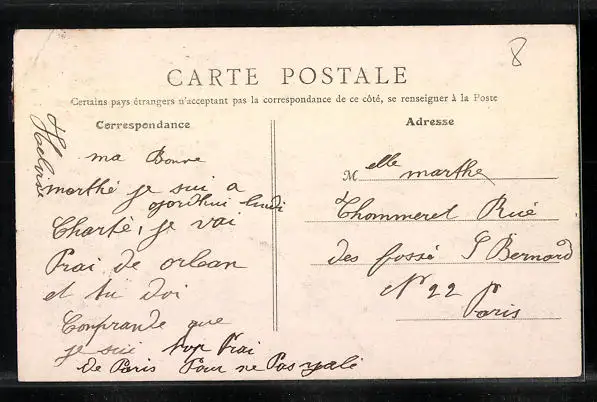 8
CARTE POSTALE
Certains pays étrangers n'acceptant pas la correspondance de ce côté, se renseigner à la Poste
Correspondance
Heloïse
ma Bonne
marthe je sui a
ojordhui lundi
Charte, je vai
Prai de orlean
et tu doi
Conprande que
je sui trop Prai
de Paris Pour ne Pas y alé
Adresse
Melle marthe
Thommeret Rue
des fossé S Bernard
N° 22 Paris